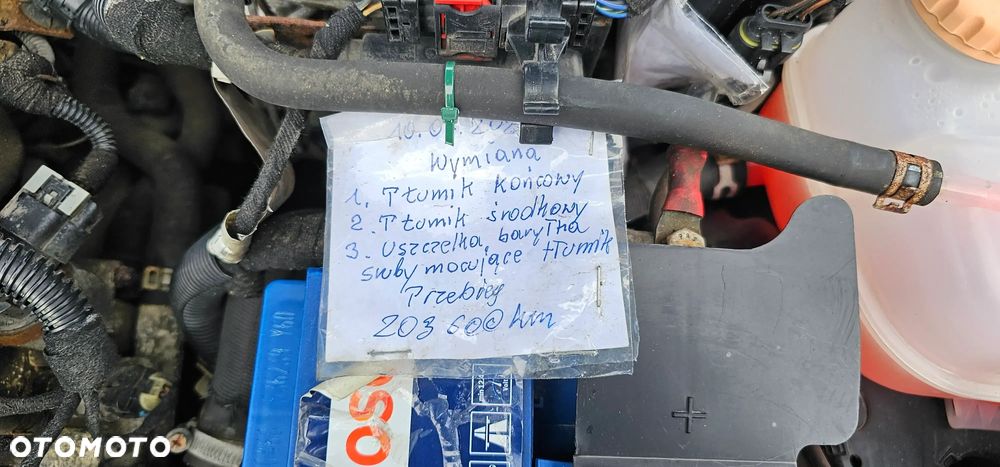 Wymiana
1. Tłumik końcowy
2. Tłumik środkowy
3. Uszczelka, baryłka
śruby mocujące tłumik
Przebieg
203 600 km
OSC
A
+
OTOMOTO